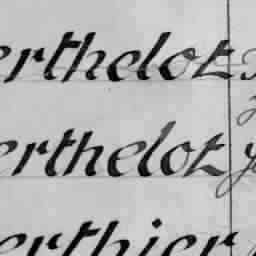 erthelot
erthelot
erthier